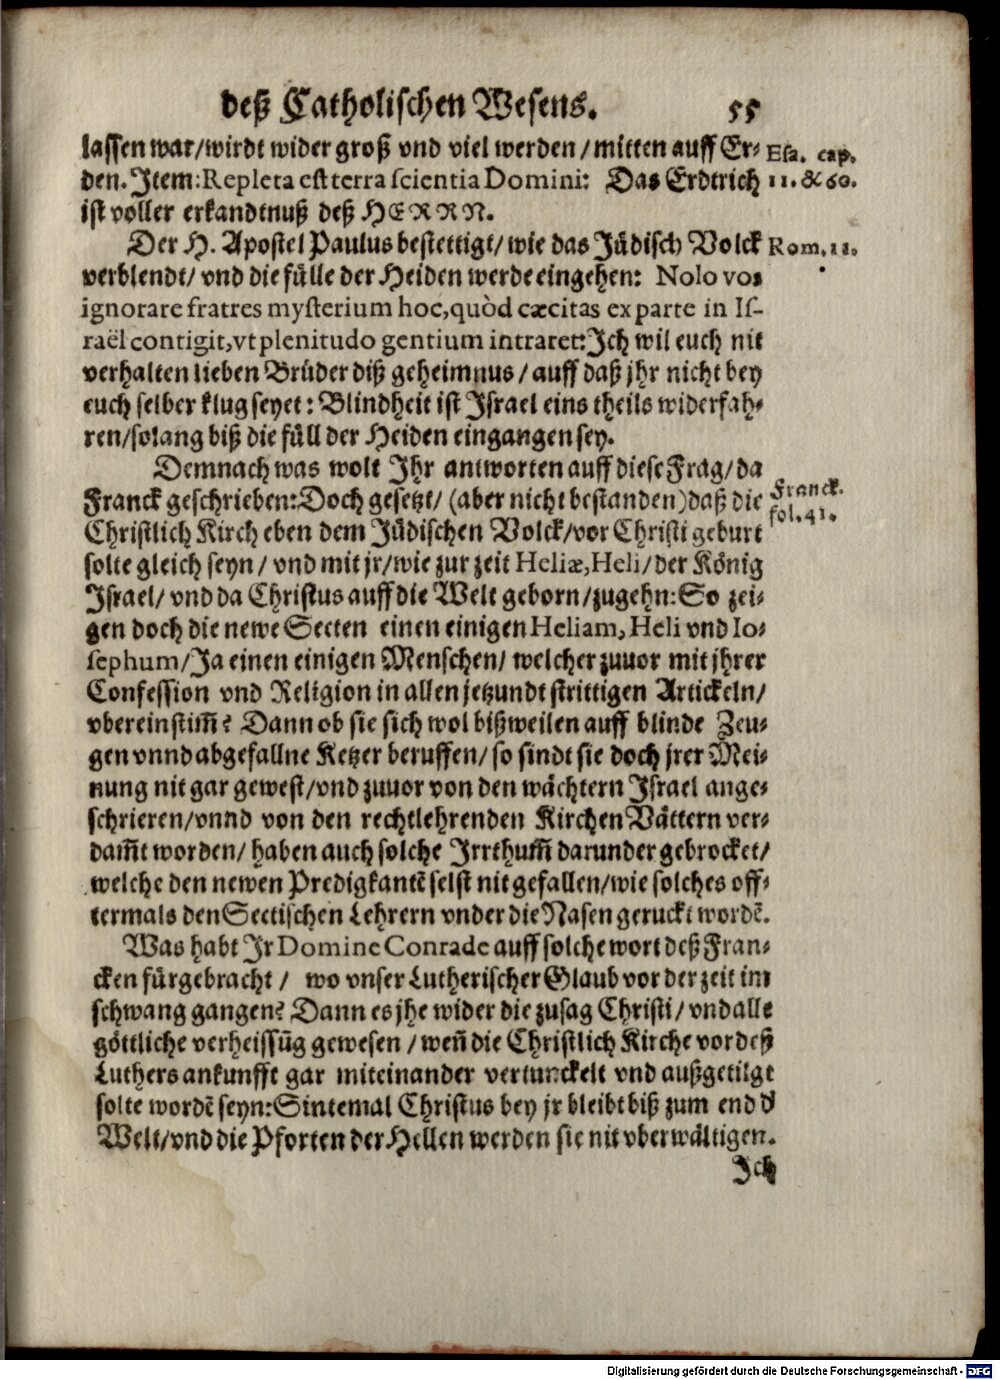 deß Catholischen Wesens. 55
lassen war/wirdt wider groß vnd viel werden/mitten auff Er- Esa. cap.
den. Item: Repleta est terra scientia Domini: Das Erdtrich 11. & 60.
ist voller erkandtnuß deß HERRN.
Der H. Apostel Paulus bestettigt/wie das Jüdisch Volck Rom. 11.
verblendt/vnd die fülle der Heiden werde eingehen: Nolo vos
ignorare fratres mysterium hoc, quòd cæcitas ex parte in Is-
raël contigit, vt plenitudo gentium intraret: Ich wil euch nit
verhalten lieben Brüder diß geheimnus/auff daß jhr nicht bey
euch selber klug seyet: Blindheit ist Israel eins theils widerfah-
ren/solang biß die füll der Heiden eingangen sey.
Demnach was wolt Ihr antworten auff diese Frag/da
Franck geschrieben: Doch gesetzt/(aber nicht bestanden) daß die Franck.
Christlich Kirch eben dem Jüdischen Volck/vor Christi geburt fol. 41.
solte gleich seyn/vnd mit jr/wie zur zeit Heliæ, Heli/der König
Israel/vnd da Christus auff die Welt geborn/zugehn: So zei-
gen doch die newe Secten einen einigen Heliam, Heli vnd Io-
sephum/Ja einen einigen Menschen/welcher zuuor mit jhrer
Confession vnd Religion in allen jetzundt strittigen Artickeln/
vbereinstim̃? Dann ob sie sich wol bißweilen auff blinde Zeu-
gen vnnd abgefallne Ketzer beruffen/so sindt sie doch jrer Mei-
nung nit gar gewest/vnd zuuor von den wächtern Israel ange-
schrieren/vnnd von den rechtlehrenden Kirchen Vättern ver-
dam̃t worden/haben auch solche Irrthum̃ darunder gebrocket/
welche den newen Predigkantẽ selst nit gefallen/wie solches off-
termals den Sectischen Lehrern vnder die Nasen geruckt wordẽ.
Was habt Ir Domine Conrade auff solche wort deß Fran-
cken fürgebracht/ wo vnser Lutherischer Glaub vor der zeit im
schwang gangen? Dann es jhe wider die zusag Christi/vnd alle
göttliche verheissũg gewesen/weñ die Christlich Kirche vor deß
Luthers ankunfft gar miteinander vertunckelt vnd außgetilgt
solte wordẽ seyn: Sintemal Christus bey jr bleibt biß zum end d'
Welt/vnd die Pforten der Hellen werden sie nit vberwältigen.
Ich
Digitalisierung gefördert durch die Deutsche Forschungsgemeinschaft - DFG